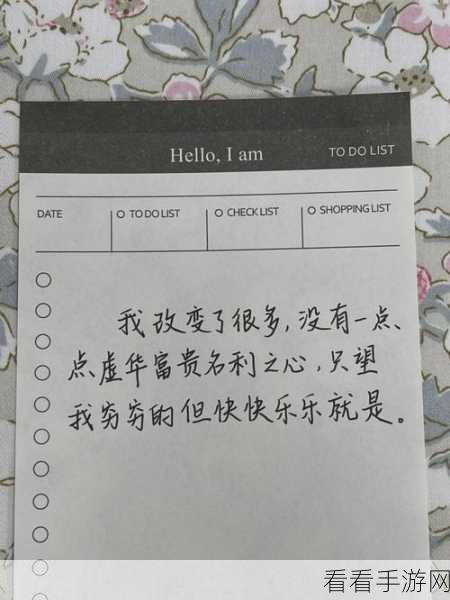 Hello, I am
TO DO LIST
DATE
TO DO LIST
CHECK LIST
SHOPPING LIST
我改变了很多,没有一点、
点虚华富贵名利之心,只望
我穷穷的但快快乐乐就是。
看看手游网